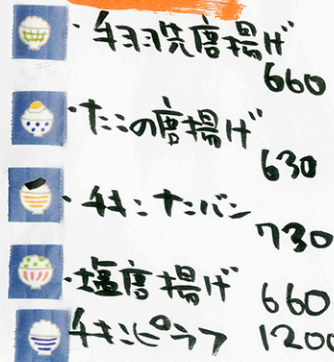 ・手羽先唐揚げ
660
・たこの唐揚げ
630
・チキンナンバン
730
・塩唐揚げ 660
チキンピラフ 1200